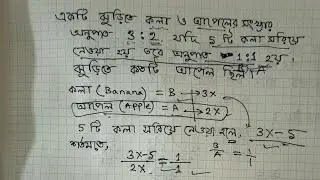 একটি ঝুড়িতে কলা ও আপেলের সংখ্যার
অনুপাত 3:2 যদি 5 টি কলা সরিয়ে
নেওয়া হয় তবে অনুপাত 1:1 হয়।
ঝুড়িতে কতটি আপেল ছিল?
কলা (Banana) = B → 3x
আপেল (Apple) = A → 2x
5 টি কলা সরিয়ে নেওয়া হলে, 3x-5
শর্তমতে,
3x-5/2x = 1/1
B/A = 1/1